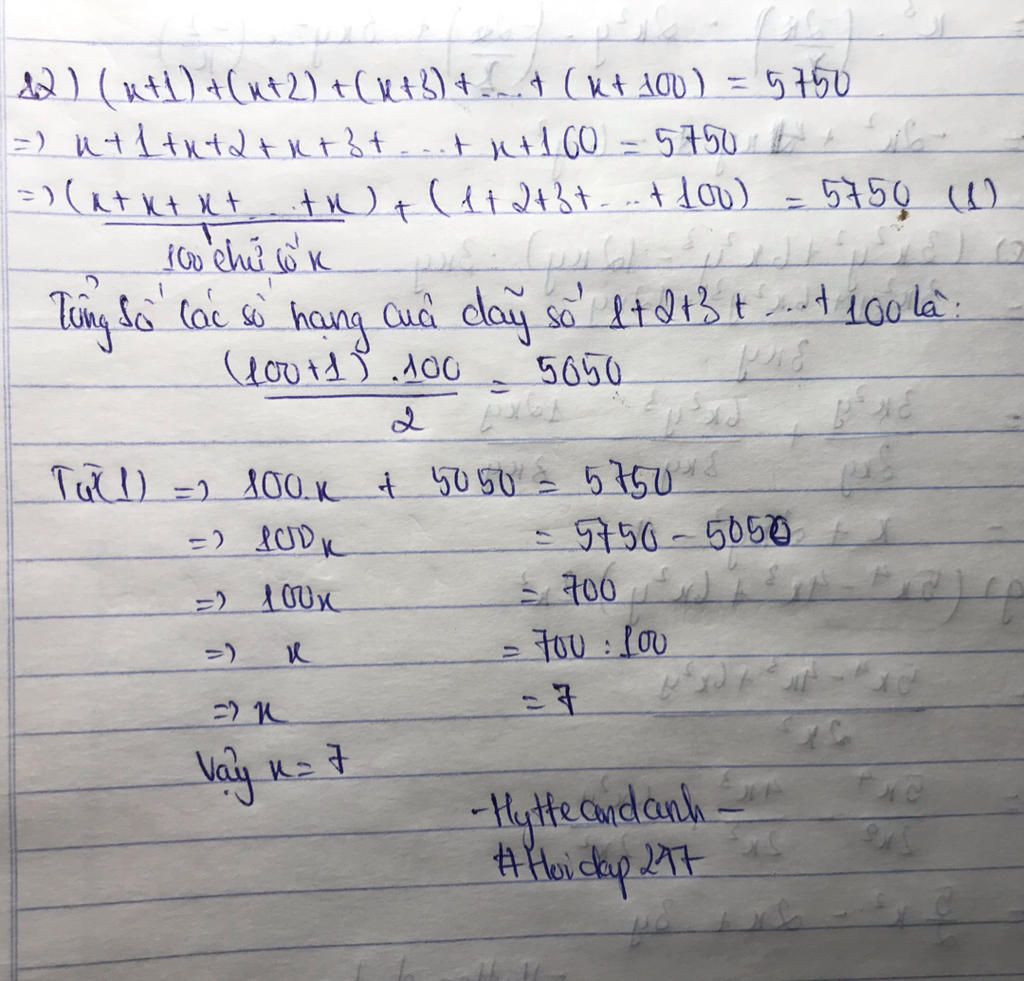 12) (x+1)+(x+2)+(x+3)+...+(x+100) = 5750
=> x+1+x+2+x+3+...+x+100 = 5750
=> (x+x+x+...+x)+(1+2+3+...+100) = 5750 (1)
100 chữ số x
Tổng số các số hạng của dãy số 1+2+3+...+100 là:
(100+1).100 = 5050
2
Từ (1) => 100.x + 5050 = 5750
=> 100x = 5750 - 5050
=> 100x = 700
=> x = 700 : 100
=> x = 7
Vậy x = 7
#Hoidap247